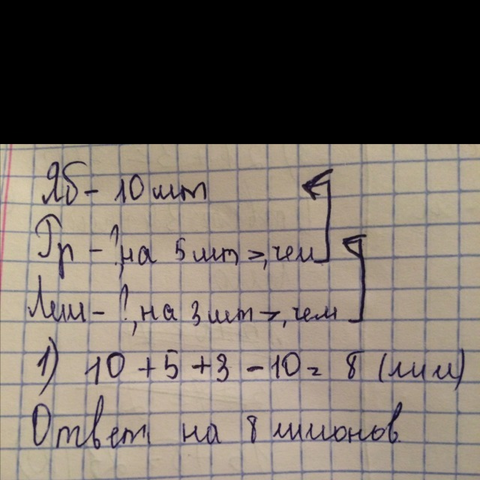 Яб - 10 шт
Гр - ?, на 5 шт >, чем
Лим - ?, на 3 шт >, чем
1) 10 + 5 + 3 - 10 = 8 (лим)
Ответ на 8 лимонов